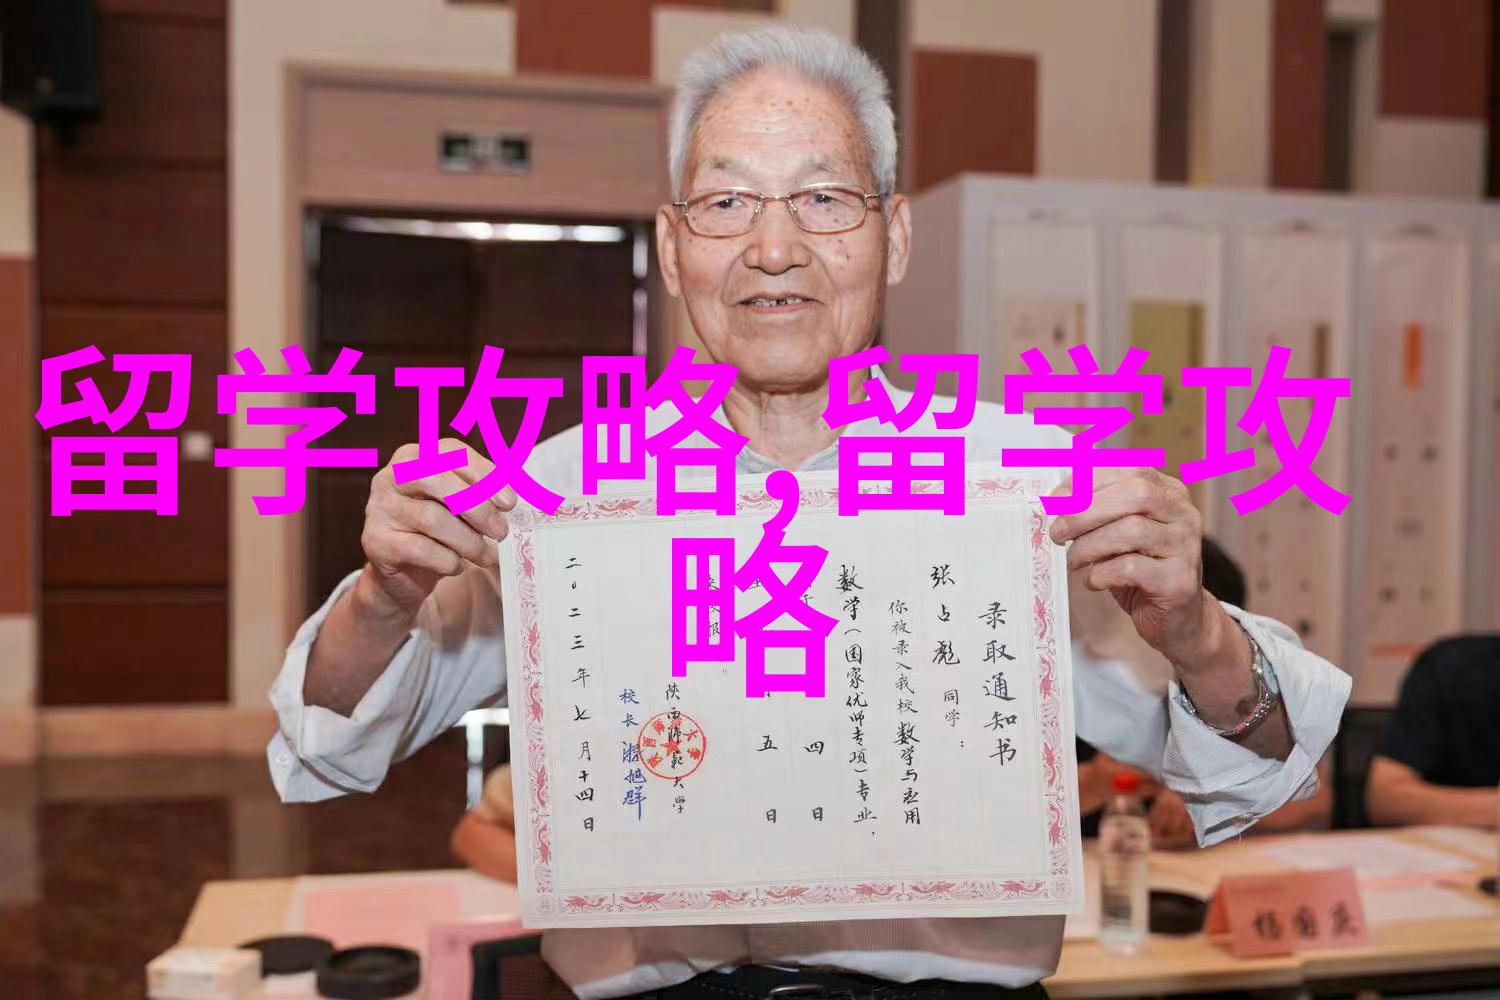 留学攻略,留学攻
略
录取通知书
张占彪 同学：
你被录入我校数学与应用
数学(国家优师专项)专业，
四日
五日
陕西师范大学
校长 游旭群
二〇二三年七月十四日
杨国庆